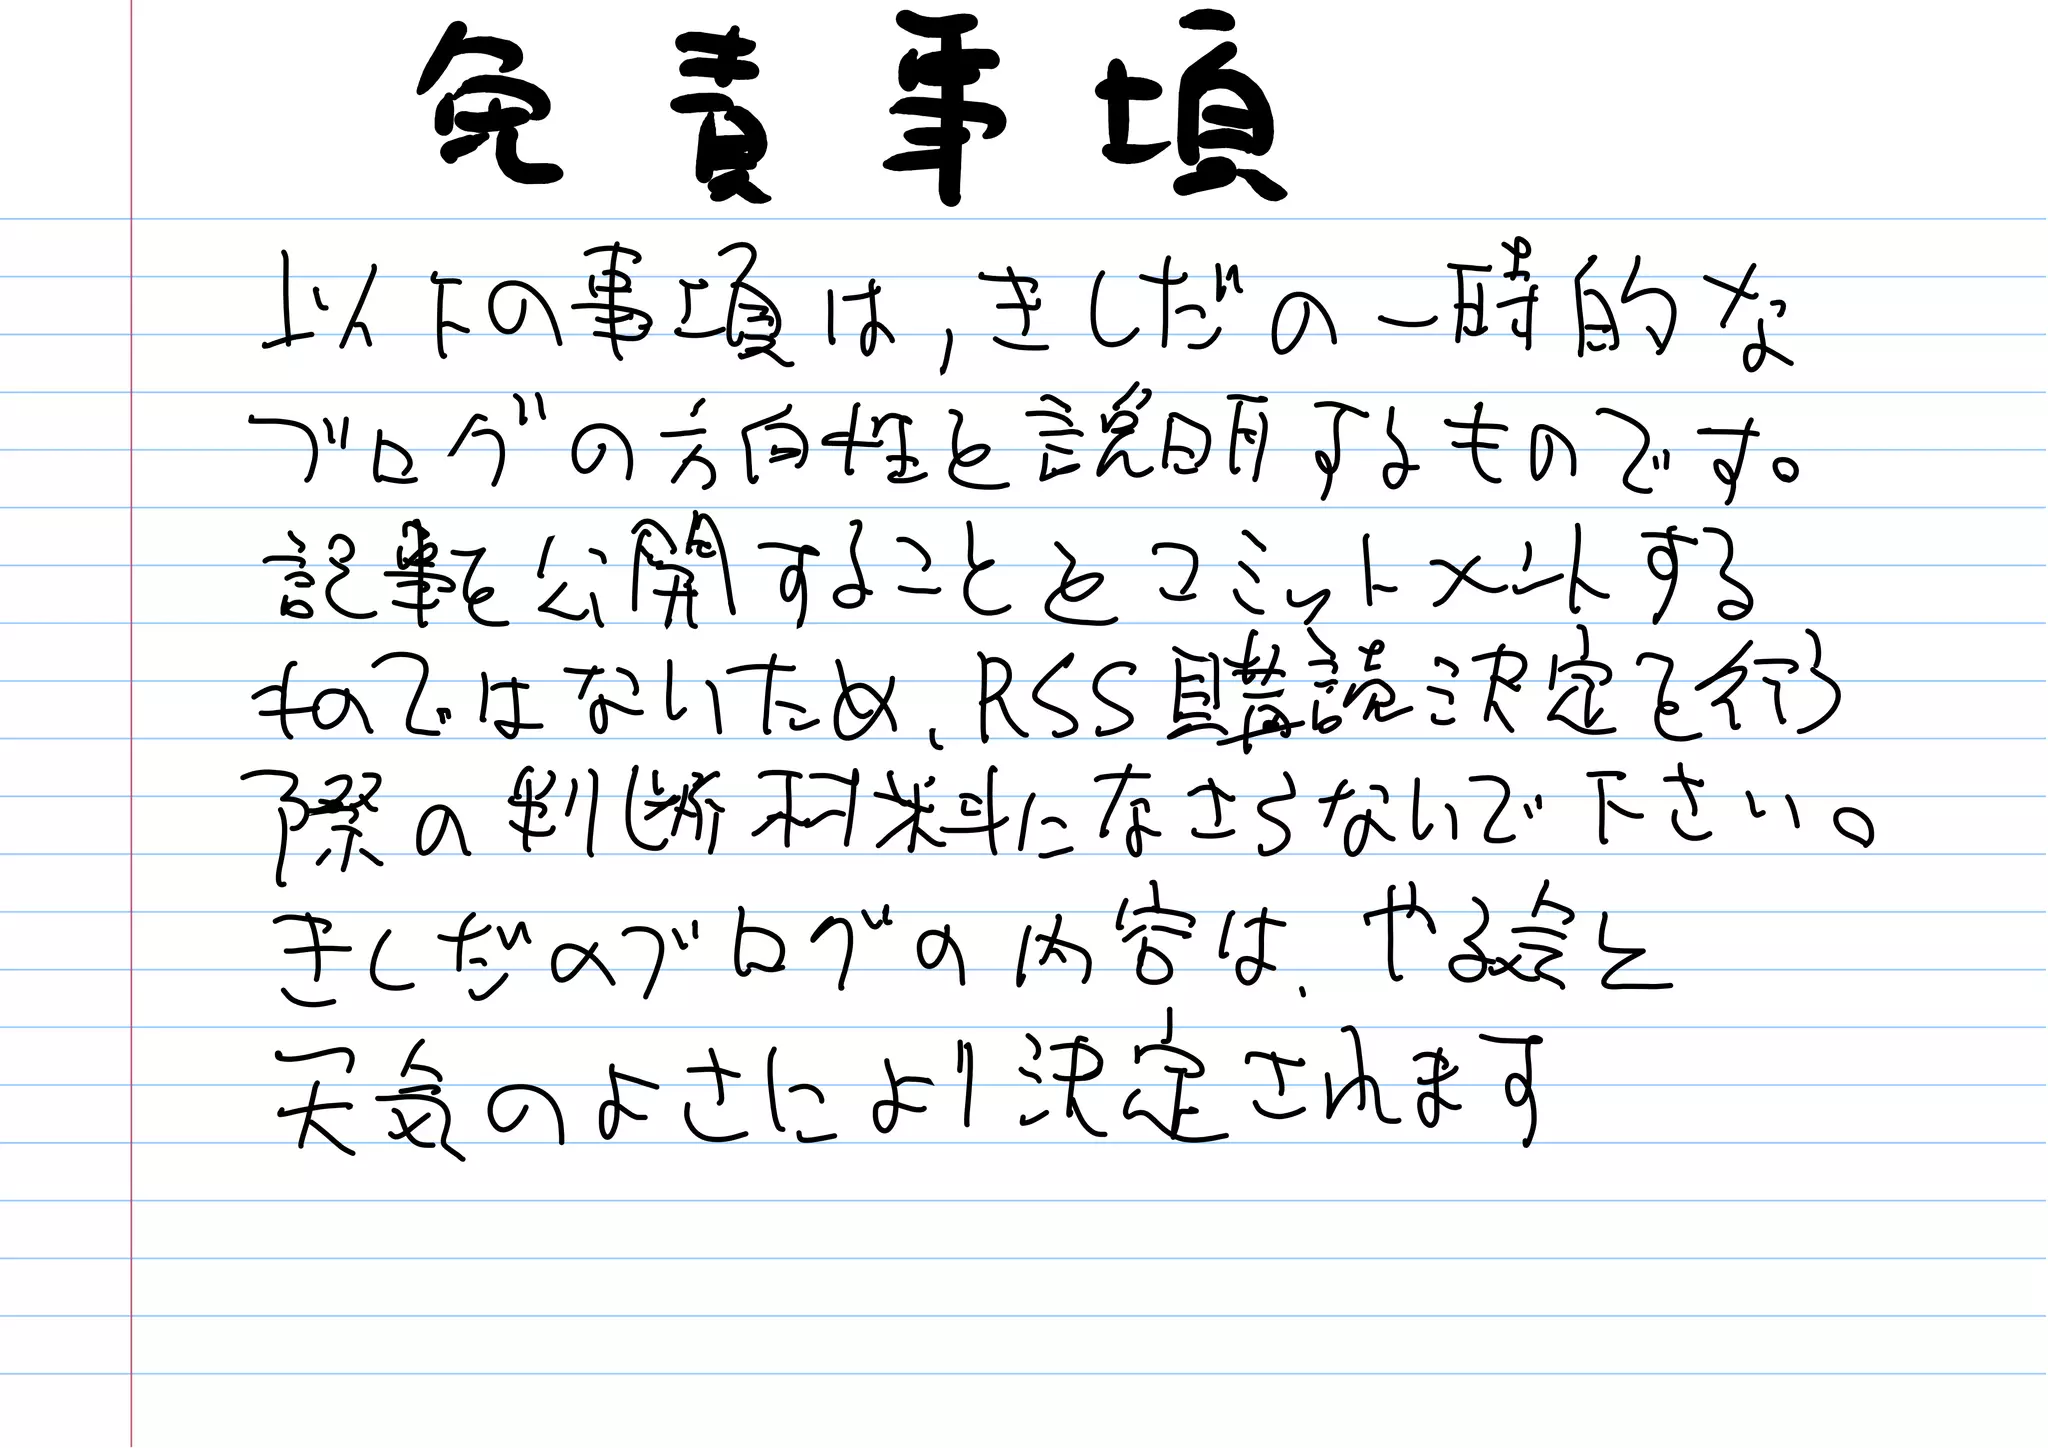 免責事項
以下の事項は,きしだの一時的な
ブログの方向性を説明するものです。
記事を公開することをコミットメントする
ものではないため、RSS購読決定を行う
際の判断材料になさらないで下さい。
きしだのブログの内容は、やる気と
天気のよさにより決定されます